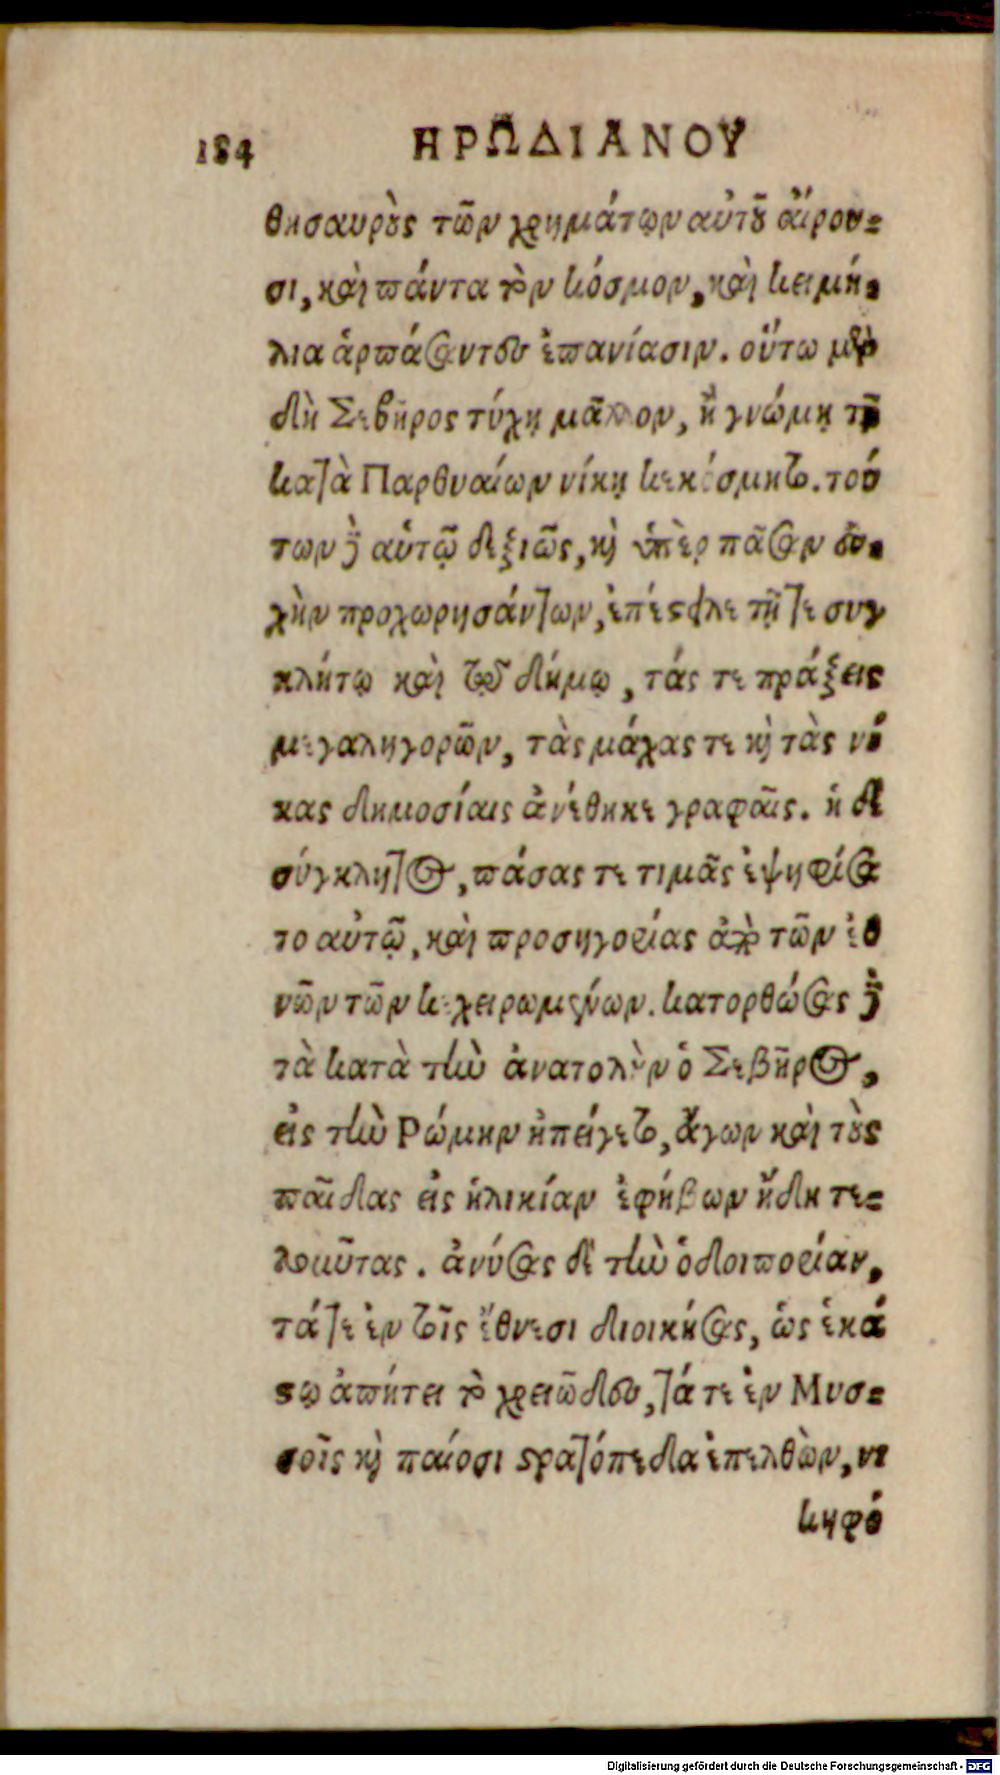 184 ΗΡΩΔΙΑΝΟΥ
θησαυροὺς τῶν χρημάτων αὐτοῦ αἴρου-
σι, καὶ πάντα τὸν κόσμον, καὶ κειμή-
λια ἁρπάσαντες ἐπανίασιν. οὕτω μὲν
δὴ Σεβῆρος τύχῃ μᾶλλον, ἢ γνώμῃ τῇ
κατὰ Παρθυαίων νίκῃ κεκόσμητο. τού
των δὲ αὐτῷ δεξιῶς, καὶ ὑπὲρ πᾶσαν εὐ-
χὴν προχωρησάντων, ἐπέστελλε τῇ τε συγ
κλήτῳ καὶ τῷ δήμῳ, τάς τε πράξεις
μεγαληγορῶν, τὰς μάχας τε καὶ τὰς νί
κας δημοσίαις ἀνέθηκε γραφαῖς. ἡ δὲ
σύγκλητος, πάσας τε τιμὰς ἐψηφίσα
το αὐτῷ, καὶ προσηγορίας ἀπὸ τῶν ἐθ
νῶν τῶν κεχειρωμένων. κατορθώσας δὲ
τὰ κατὰ τὴν ἀνατολὴν ὁ Σεβῆρος,
εἰς τὴν Ρώμην ἠπείγετο, ἄγων καὶ τοὺς
παῖδας εἰς ἡλικίαν ἐφήβων ἤδη τε-
λοῦντας. ἀνύσας δὲ τὴν ὁδοιπορίαν,
τά τε ἐν τοῖς ἔθνεσι διοικήσας, ὡς ἑκά
στῳ ἀπῄτει τὸ χρειῶδες, τά τε ἐν Μυσ-
σοῖς καὶ παίοσι στρατόπεδα ἐπελθὼν, νι
κηφό
Digitalisierung gefördert durch die Deutsche Forschungsgemeinschaft - DFG